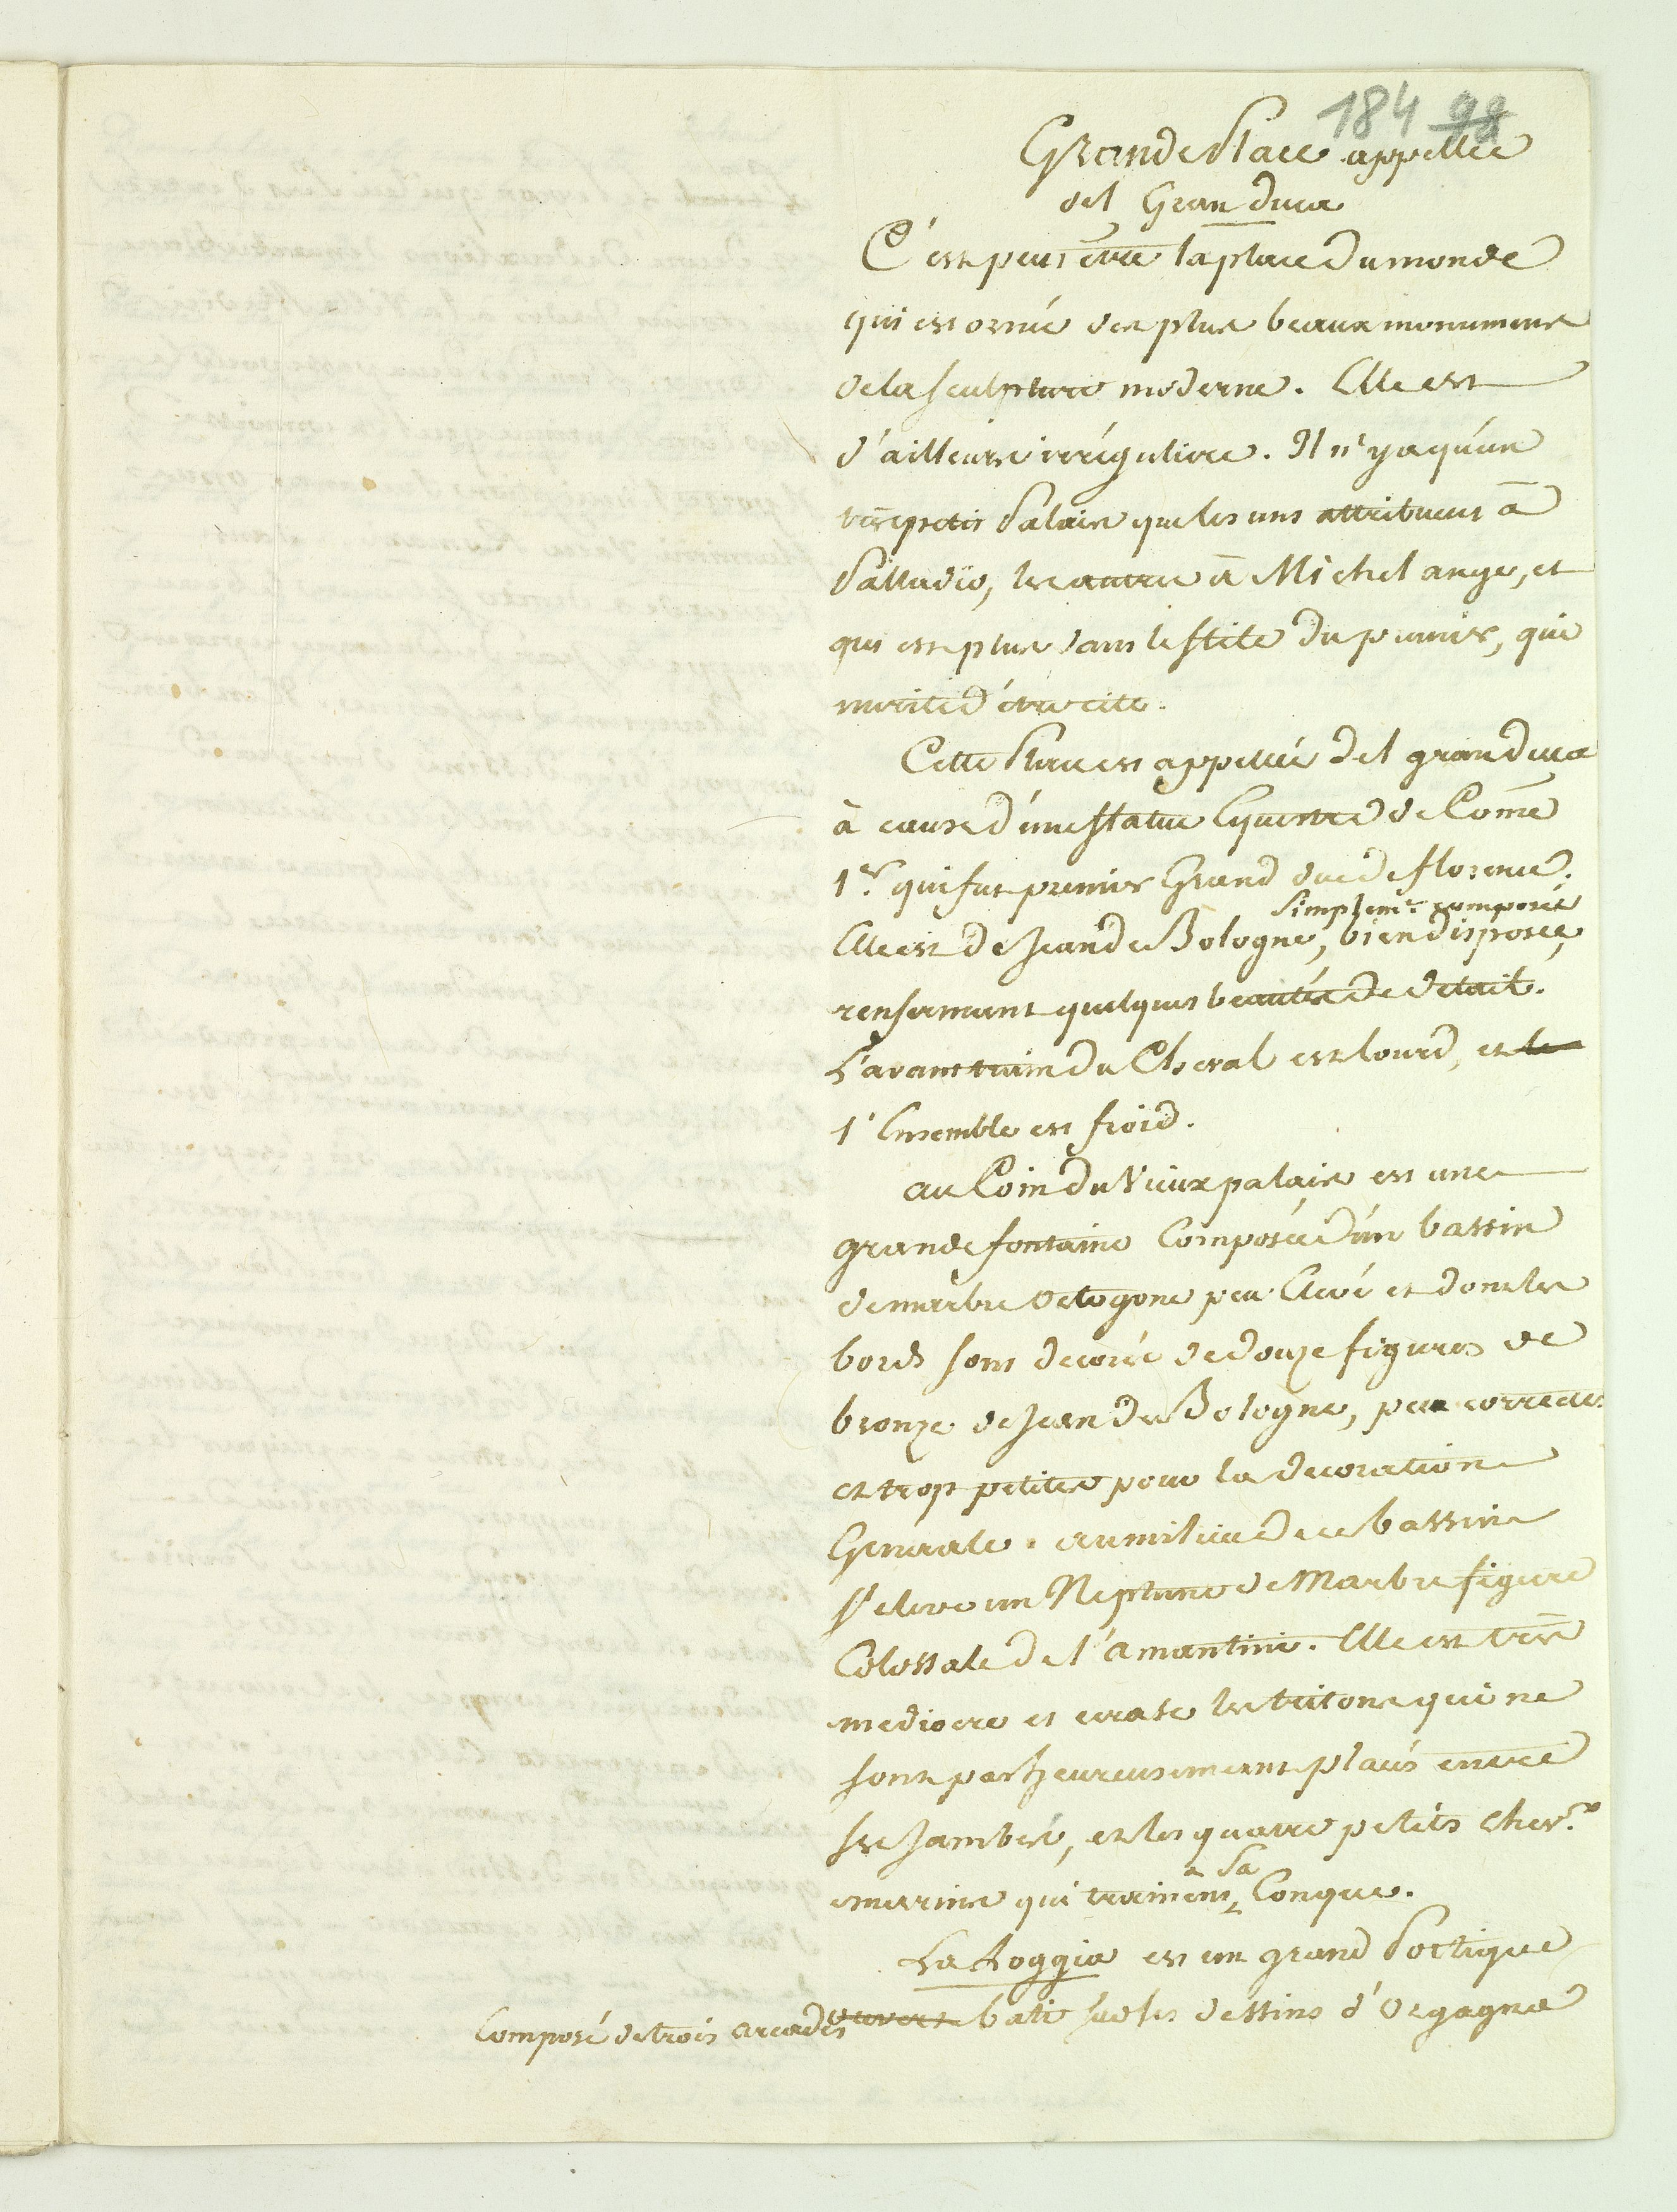 184 99
Grande Place appellée
del Gran Duca
C'est peut être la place du monde
qui est ornée des plus beaux monumens
de la sculpture moderne. Elle est
d'ailleurs irréguliere. Il n'y a qu'un
très petit Palais que les uns attribuent à
Palladio, les autres à Michel ange, et
qui est plus dans le stile du premier, qui
merite d'être cité.
Cette Place est appellée del gran duca
à cause d'une statue Equestre de Côme
1er qui fut premier Grand duc de florence.
simplemt composée
Elle est de Jean de Bologne, bien disposée,
renfermant quelques beautés de détail.
L'avant train du Cheval est lourd, et le
l'Ensemble est froid.
au Coin du Vieux palais est une
grande fontaine Composée d'un bassin
de marbre octogone peu Elevé et dont les
bords sont decorés de douze figures de
bronze de Jean de Bologne, peu correctes
et trop petites pour la decoration
Generale. au milieu de ce bassin
s'eleve un Neptune de Marbre figure
Colossale de l'amantini. Elle est très
mediocre et ecrase les tritons qui ne
sont pas heureusement placés entre
ses Jambes, et les quatre petits chev.x
marins qui trainent sa Conque.
La Loggia est un grand Portique
Composé de trois arcades ouvert bati sur les dessins d'Orgagna